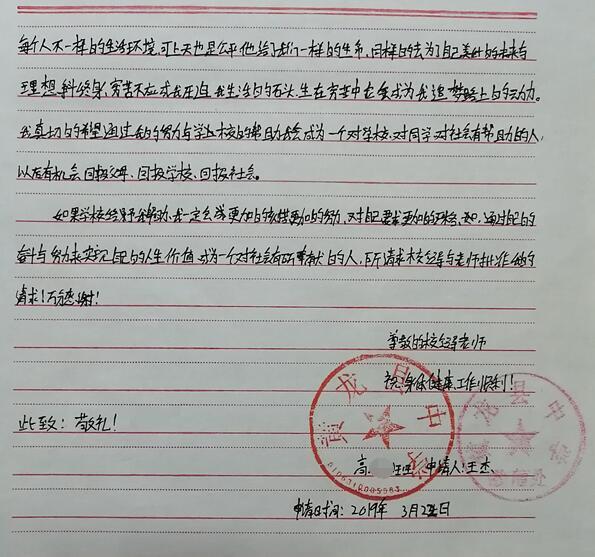 每个人不一样的生活环境,可上天也是公平他给了我们一样的生命,同样的去为了自己美好的未来与
理想,斗终身,穷苦不应成我开启我生活的石头,生在穷苦中它会成为我追梦路上的动力。
我真切的希望通过我的努力与学业校的帮助我会成为一个对学校、对同学对社会有帮助的人,
以后有机会回报父母、回报学校、回报社会。
如果学校给予我帮助,我一定会学更加的 更加的努力,对自己要求更加的严格,通过自己的
奋斗与努力来实现自己的人生价值,成为一个对社会有所奉献的人,所请求校领导与老师批准我的
请求!万分感谢!
尊敬的校领导老师
祝:身体健康,工作顺利!
此致:敬礼!
高 班 申请人:王杰、
申请时间:2019年 3月2 日
龙县中学
龙县中学